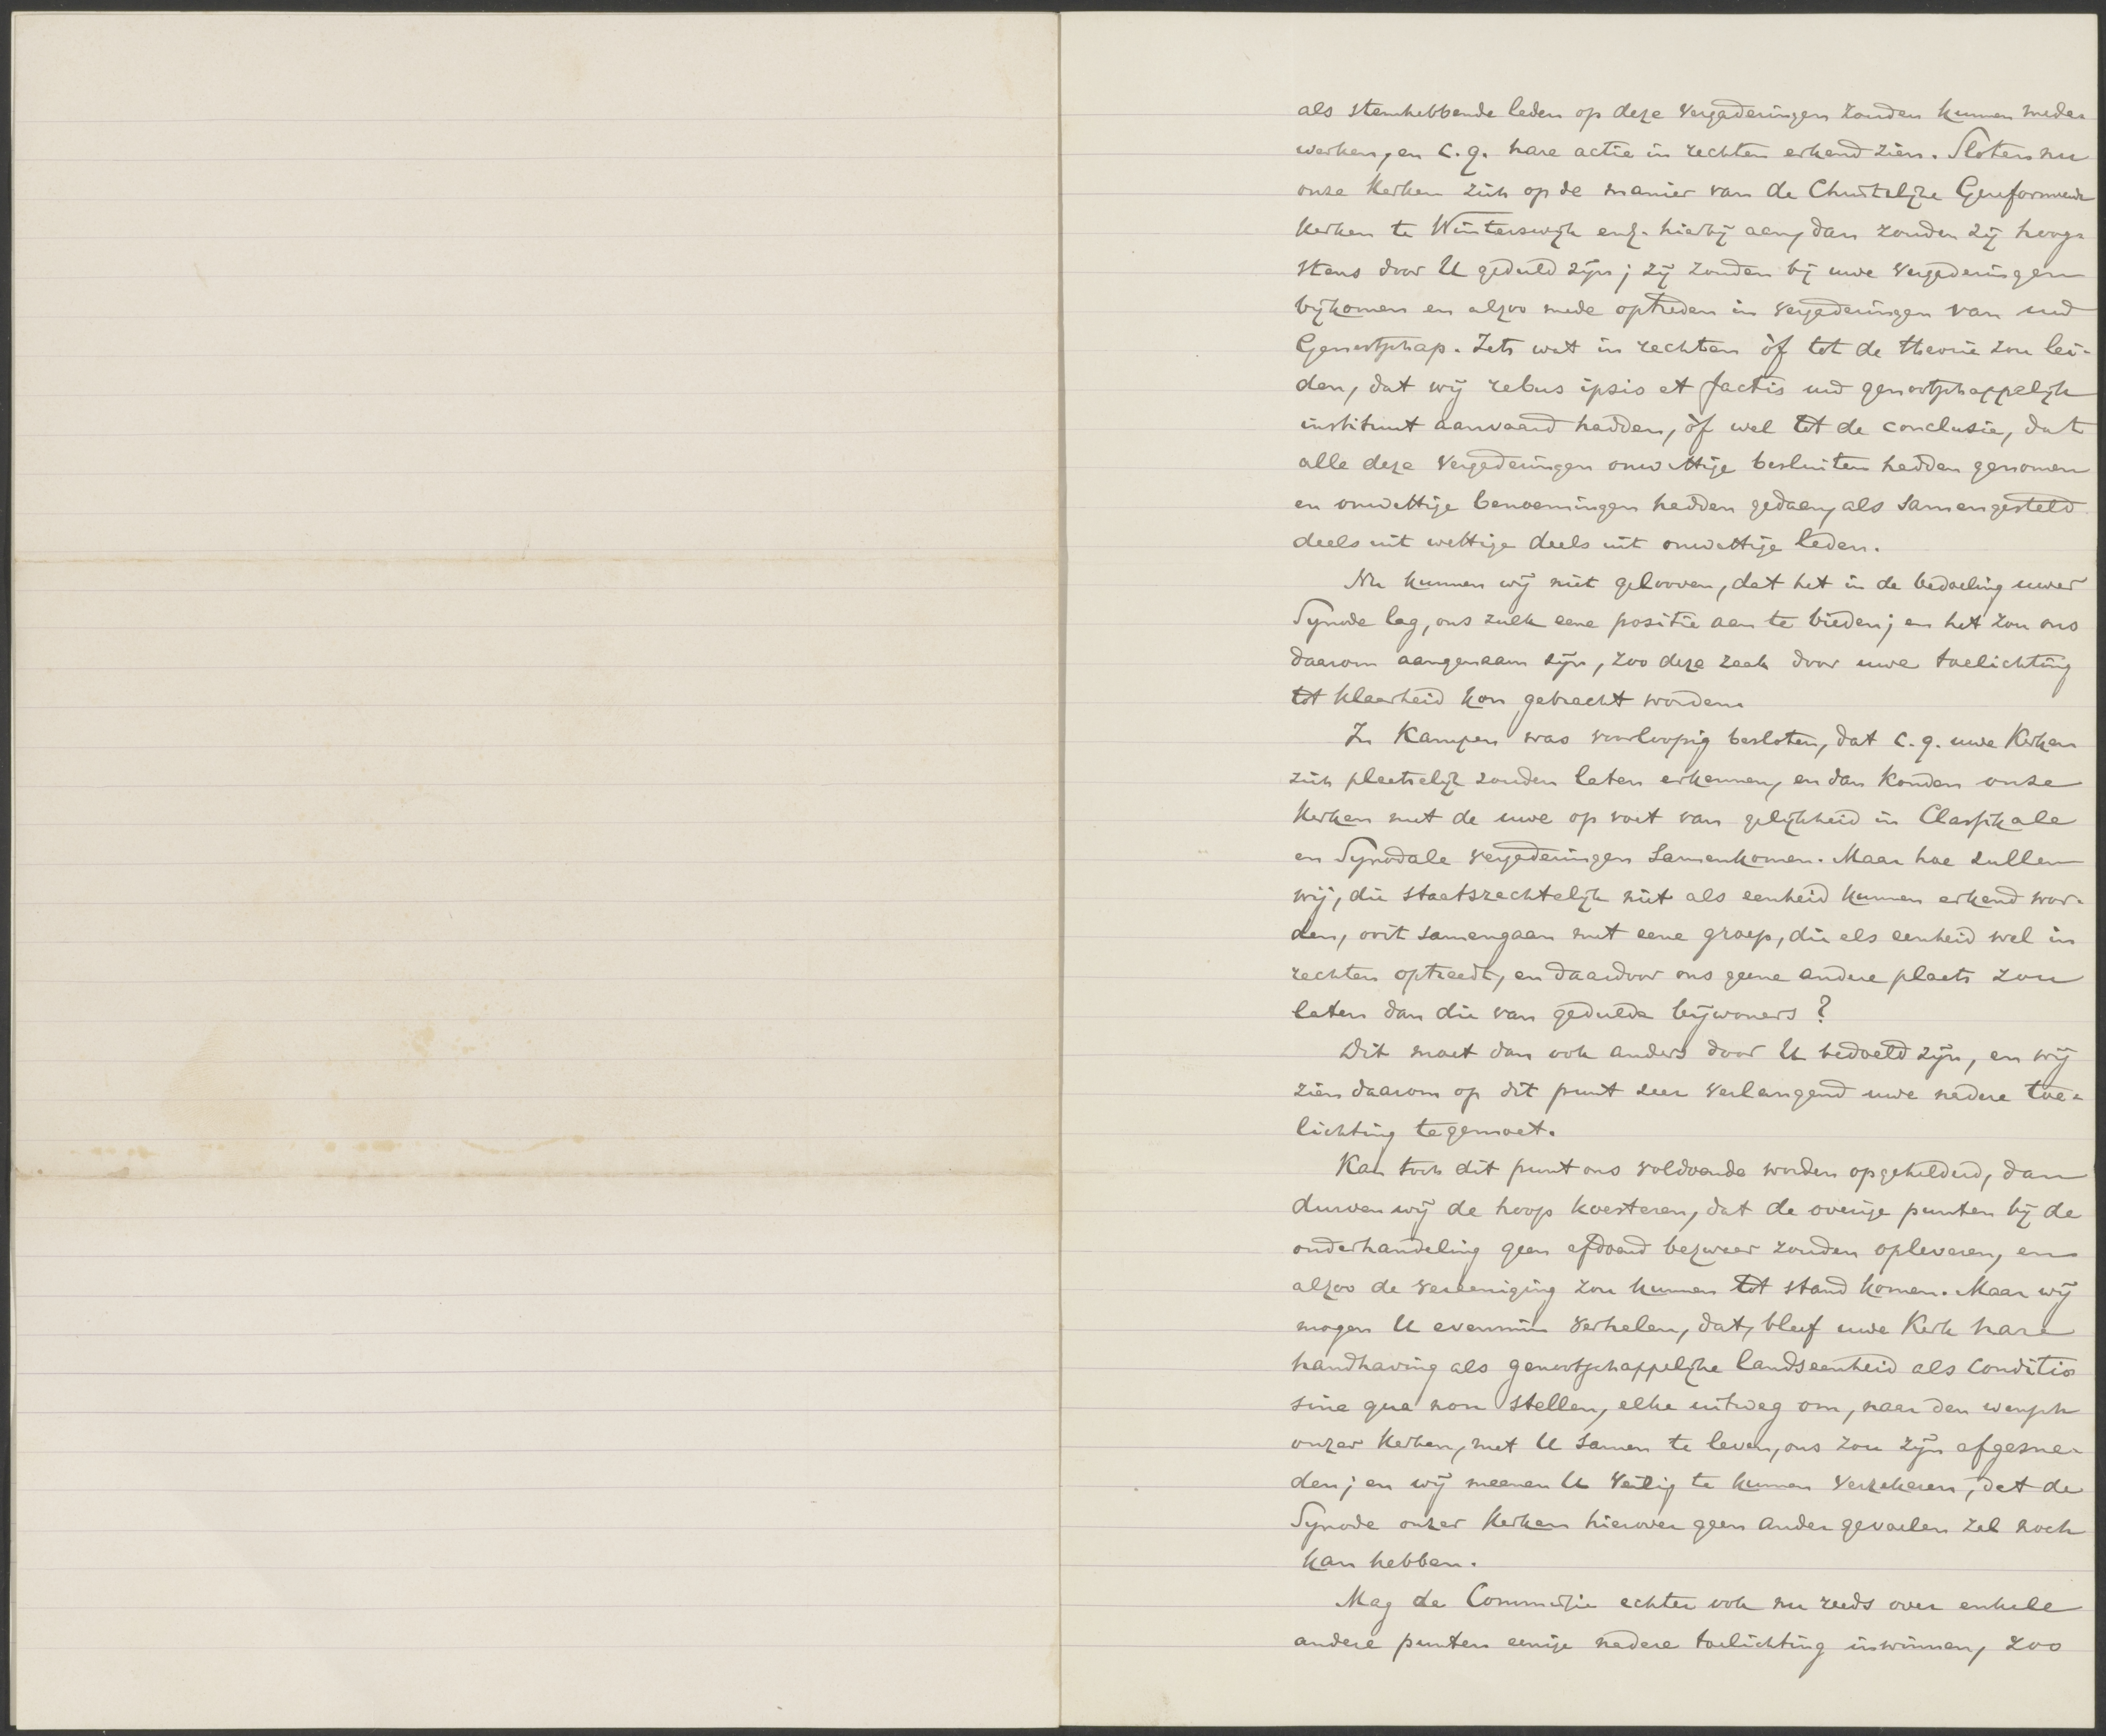 als stemhebbende leden op deze vergaderingen zouden kunnen mede-
werken, en c.q. hare actie in rechten erkend zien. Sloten nu
onze Kerken zich op de manier van de Christelijke Gereformeerde
Kerken te Winterswijk enz. hierbij aan, dan zouden zij hoog-
stens door U geduld zijn; zij zouden bij uwe vergaderingen
bijkomen en alzoo mede optreden in vergaderingen van uw
Genootschap. Iets wat in rechten òf tot de theorie zou lei-
den, dat wij rebus ipsis et factis uw genootschappelijk
instituut aanvaard hadden, òf wel tot de conclusie, dat
alle deze vergaderingen onwettige besluiten hadden genomen
en onwettige benoemingen hadden gedaan, als samengesteld
deels uit wettige deels uit onwettige leden.
Nu kunnen wij niet gelooven, dat het in de bedoeling uwer
Synode lag, ons zulk eene positie aan te bieden; en het zou ons
daarom aangenaam zijn, zoo deze zaak door uwe toelichting
tot klaarheid kon gebracht worden.
In Kampen was voorloopig besloten, dat c.q. uwe Kerken
zich plaatselijk zouden laten erkennen, en dan konden onze
Kerken met de uwe op voet van gelijkheid in Classikale
en Synodale vergaderingen samenkomen. Maar hoe zullen
wij, die staatsrechtelijk niet als eenheid kunnen erkend wor-
den, ooit samengaan met eene groep, die als eenheid wel in
rechten optreedt, en daardoor ons geene andere plaats zou
laten dan die van gedulde bijwoners?
Dit moet dan ook anders door U bedoeld zijn, en wij
zien daarom op dit punt zeer verlangend uwe nadere toe-
lichting tegemoet.
Kan toch dit punt ons voldoende worden opgehelderd, dan
durven wij de hoop koesteren, dat de overige punten bij de
onderhandeling geen afdoend bezwaar zouden opleveren, en
alzoo de vereeniging zou kunnen tot stand komen. Maar wij
mogen U evenmin verhelen, dat, bleef uwe Kerk hare
handhaving als genootschappelijke landseenheid als conditio
sine qua non stellen, elke uitweg om, naar den wensch
onzer Kerken, met U samen te leven, ons zou zijn afgesne-
den; en wij meenen U veilig te kunnen verzekeren, dat de
Synode onzer Kerken hierover geen ander gevoelen zal noch
kan hebben.
Mag de Commissie echter ook nu reeds over enkele
andere punten eenige nadere toelichting inwinnen, zoo